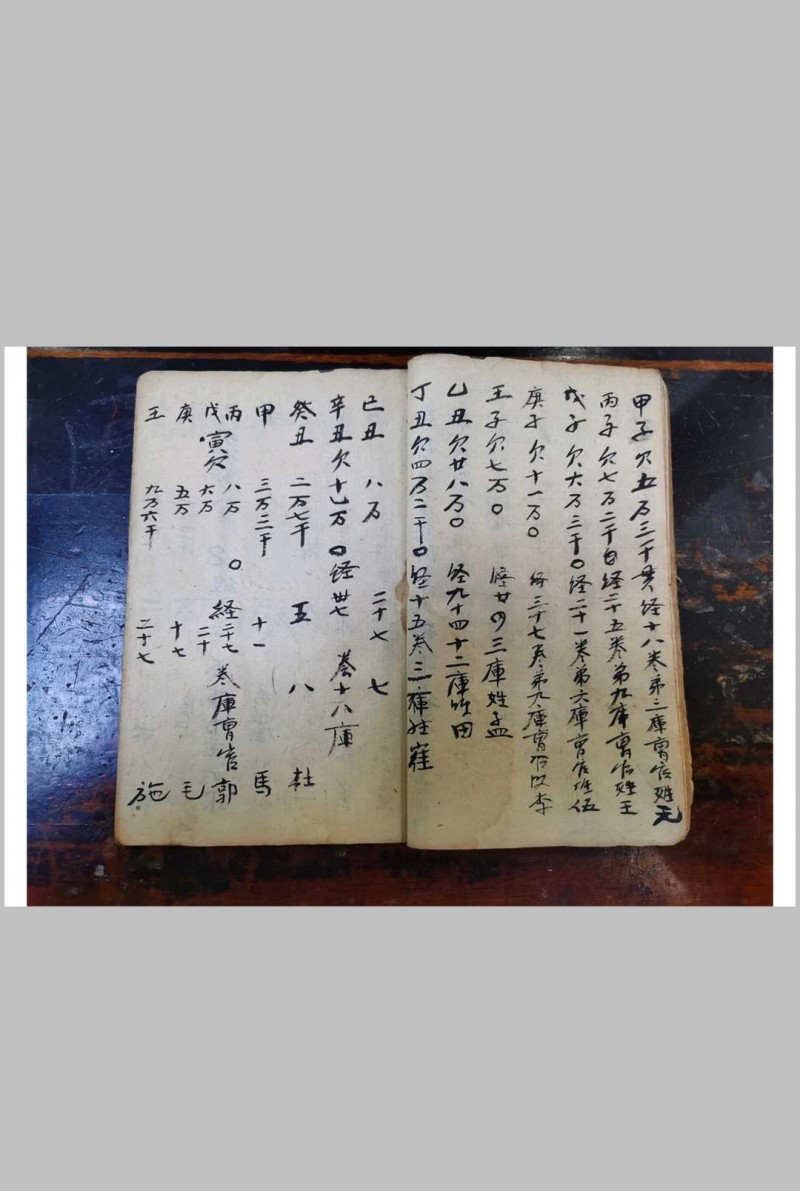 甲子欠五万三千贯经十八卷弟三库曹官姓元
丙子欠七万二千 经二十五卷弟九库曹官姓王
戊子欠六万三千〇经二十一卷弟六库曹官姓伍
庚子欠十一万〇 经三十七卷弟九库曹官 李
壬子欠七万〇 廿 三库姓孟
乙丑欠廿八万〇 经九十四十二库姓田
丁丑欠四万二千〇经十五卷三库姓崔
已丑 八万 二十七 七
辛丑欠十 万〇经卅七 卷十八库
癸丑 二万七千 五 八 杜
甲 三万三千 十一 馬
丙 八万 〇 経二十七卷庫曹官 郭
寅欠
戊 六万 二十
庚 五万 十七 毛
壬 九万六千 二十七 施